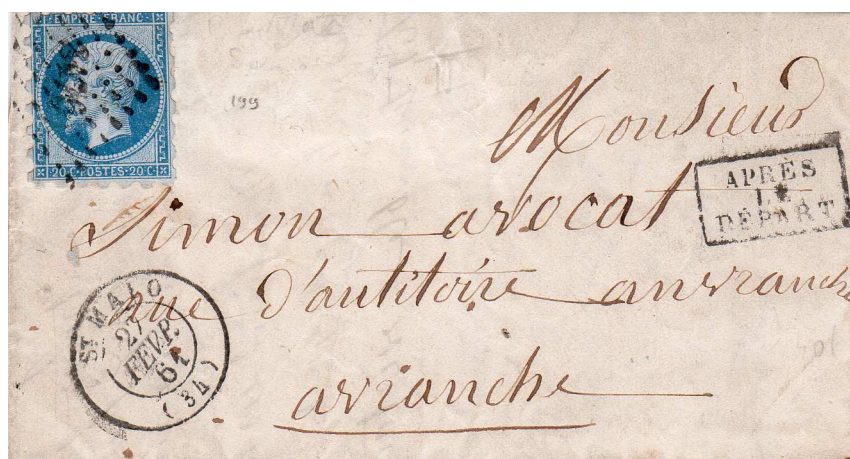 EMPIRE FRANC
20 C POSTES 20 C
199
Monsieur
APRÈS
LE
DÉPART
Simon avocat
rue d'antitoire avvranche
avranche
ST MALO
27
FÉVR.
61
(34)